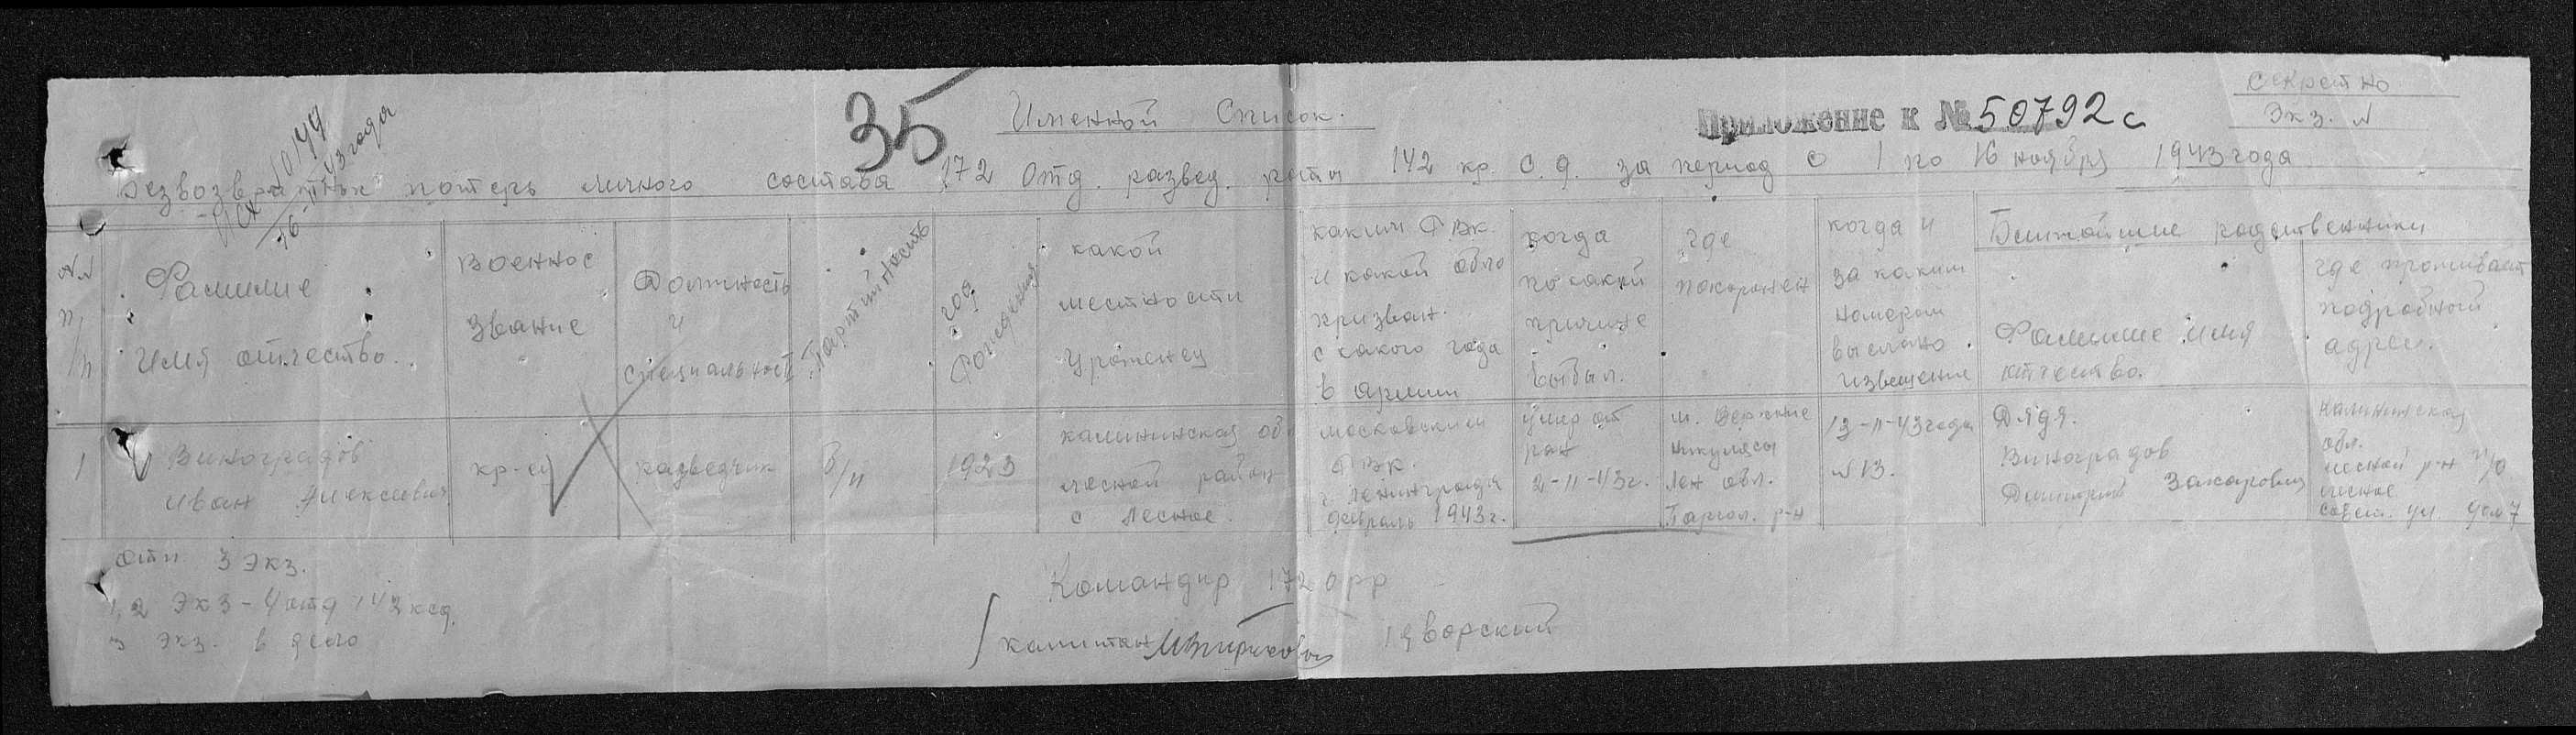 секретно
Экз. №
35
Именной Список.
Приложение к № 50792с
16-11-43 года
Безвозвратных потерь личного состава 172 Отд. развед. роты 142 кр. С. д. за период с 1 по 16 ноября 1943 года
№№ п/п
Фамилие
Имя отчество.
Военное
Звание
Должность
и
специальность
Партийность
год
Рождения
какой
местности
Уроженец
каким РВК.
и какой обл.
призван.
с какого года
в армии
когда
по какой
причине
выбыл.
где
похоронен
когда и
за каким
номером
выслано
извещение
Ближайшие родственники
Фамилие имя
отчество.
где проживает
подробный
адрес.
1
Виноградов
Иван Алексеевич
кр-ец
разведчик
Б/п
1923
калининская обл
лесной район
с Лесное.
московским
РВК.
г. Ленинграда
февраль 1943 г.
умер от
ран
2-11-43 г.
м. Верхние
Никулясы
Лен обл.
Паргол. р-н
13-11-43 года
№ 13.
Дядя.
Виноградов
Дмитрий Захарович
Калининская
обл.
лесной р-н п/о
лесное
совет. ул. дом 7
отп 3 экз.
1,2 Экз - 4 отд 142 ксд.
3 экз. в дело
Командир 172 орр
капитан
Яворский